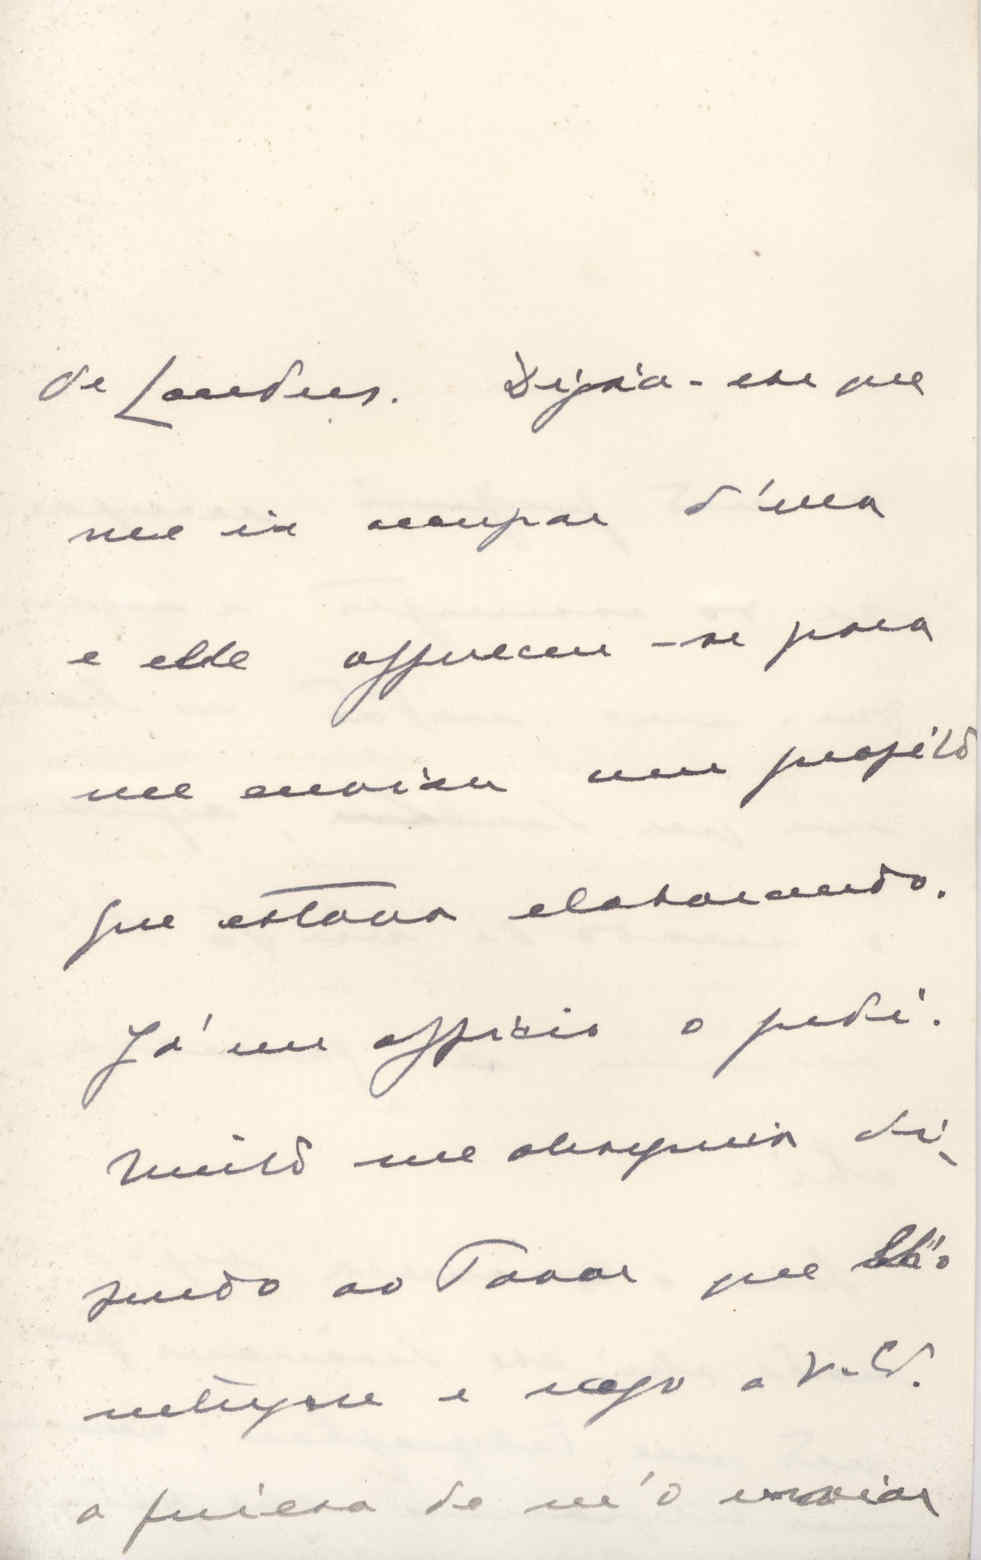 de Londres. Dizia-me que
me ia occupar d'uma
e elle offereceu-se para
me enviar um projecto
que estava elaborando.
Já em officio o pedi.
Muito me obsequia di-
zendo ao Tovar que lh'o
entregue e rogo a V. E.
a fineza de m'o enviar